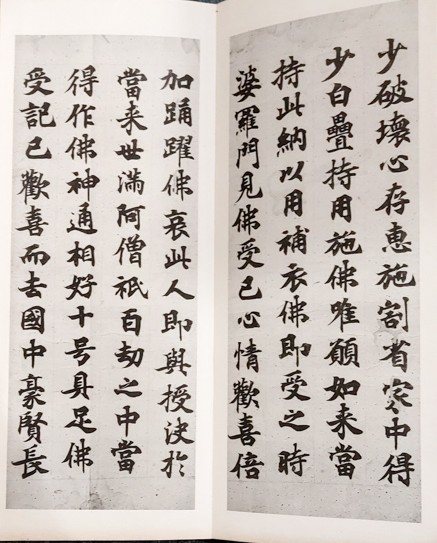 少破壞心存惠施割省家中得
少白疊持用施佛唯願如来當
持此納以用補衣佛即受之時
婆羅門見佛受已心情歡喜倍
加踊躍佛哀此人即與授决於
當来世滿阿僧祇百劫之中當
得作佛神通相好十号具足佛
受記已歡喜而去國中豪賢長